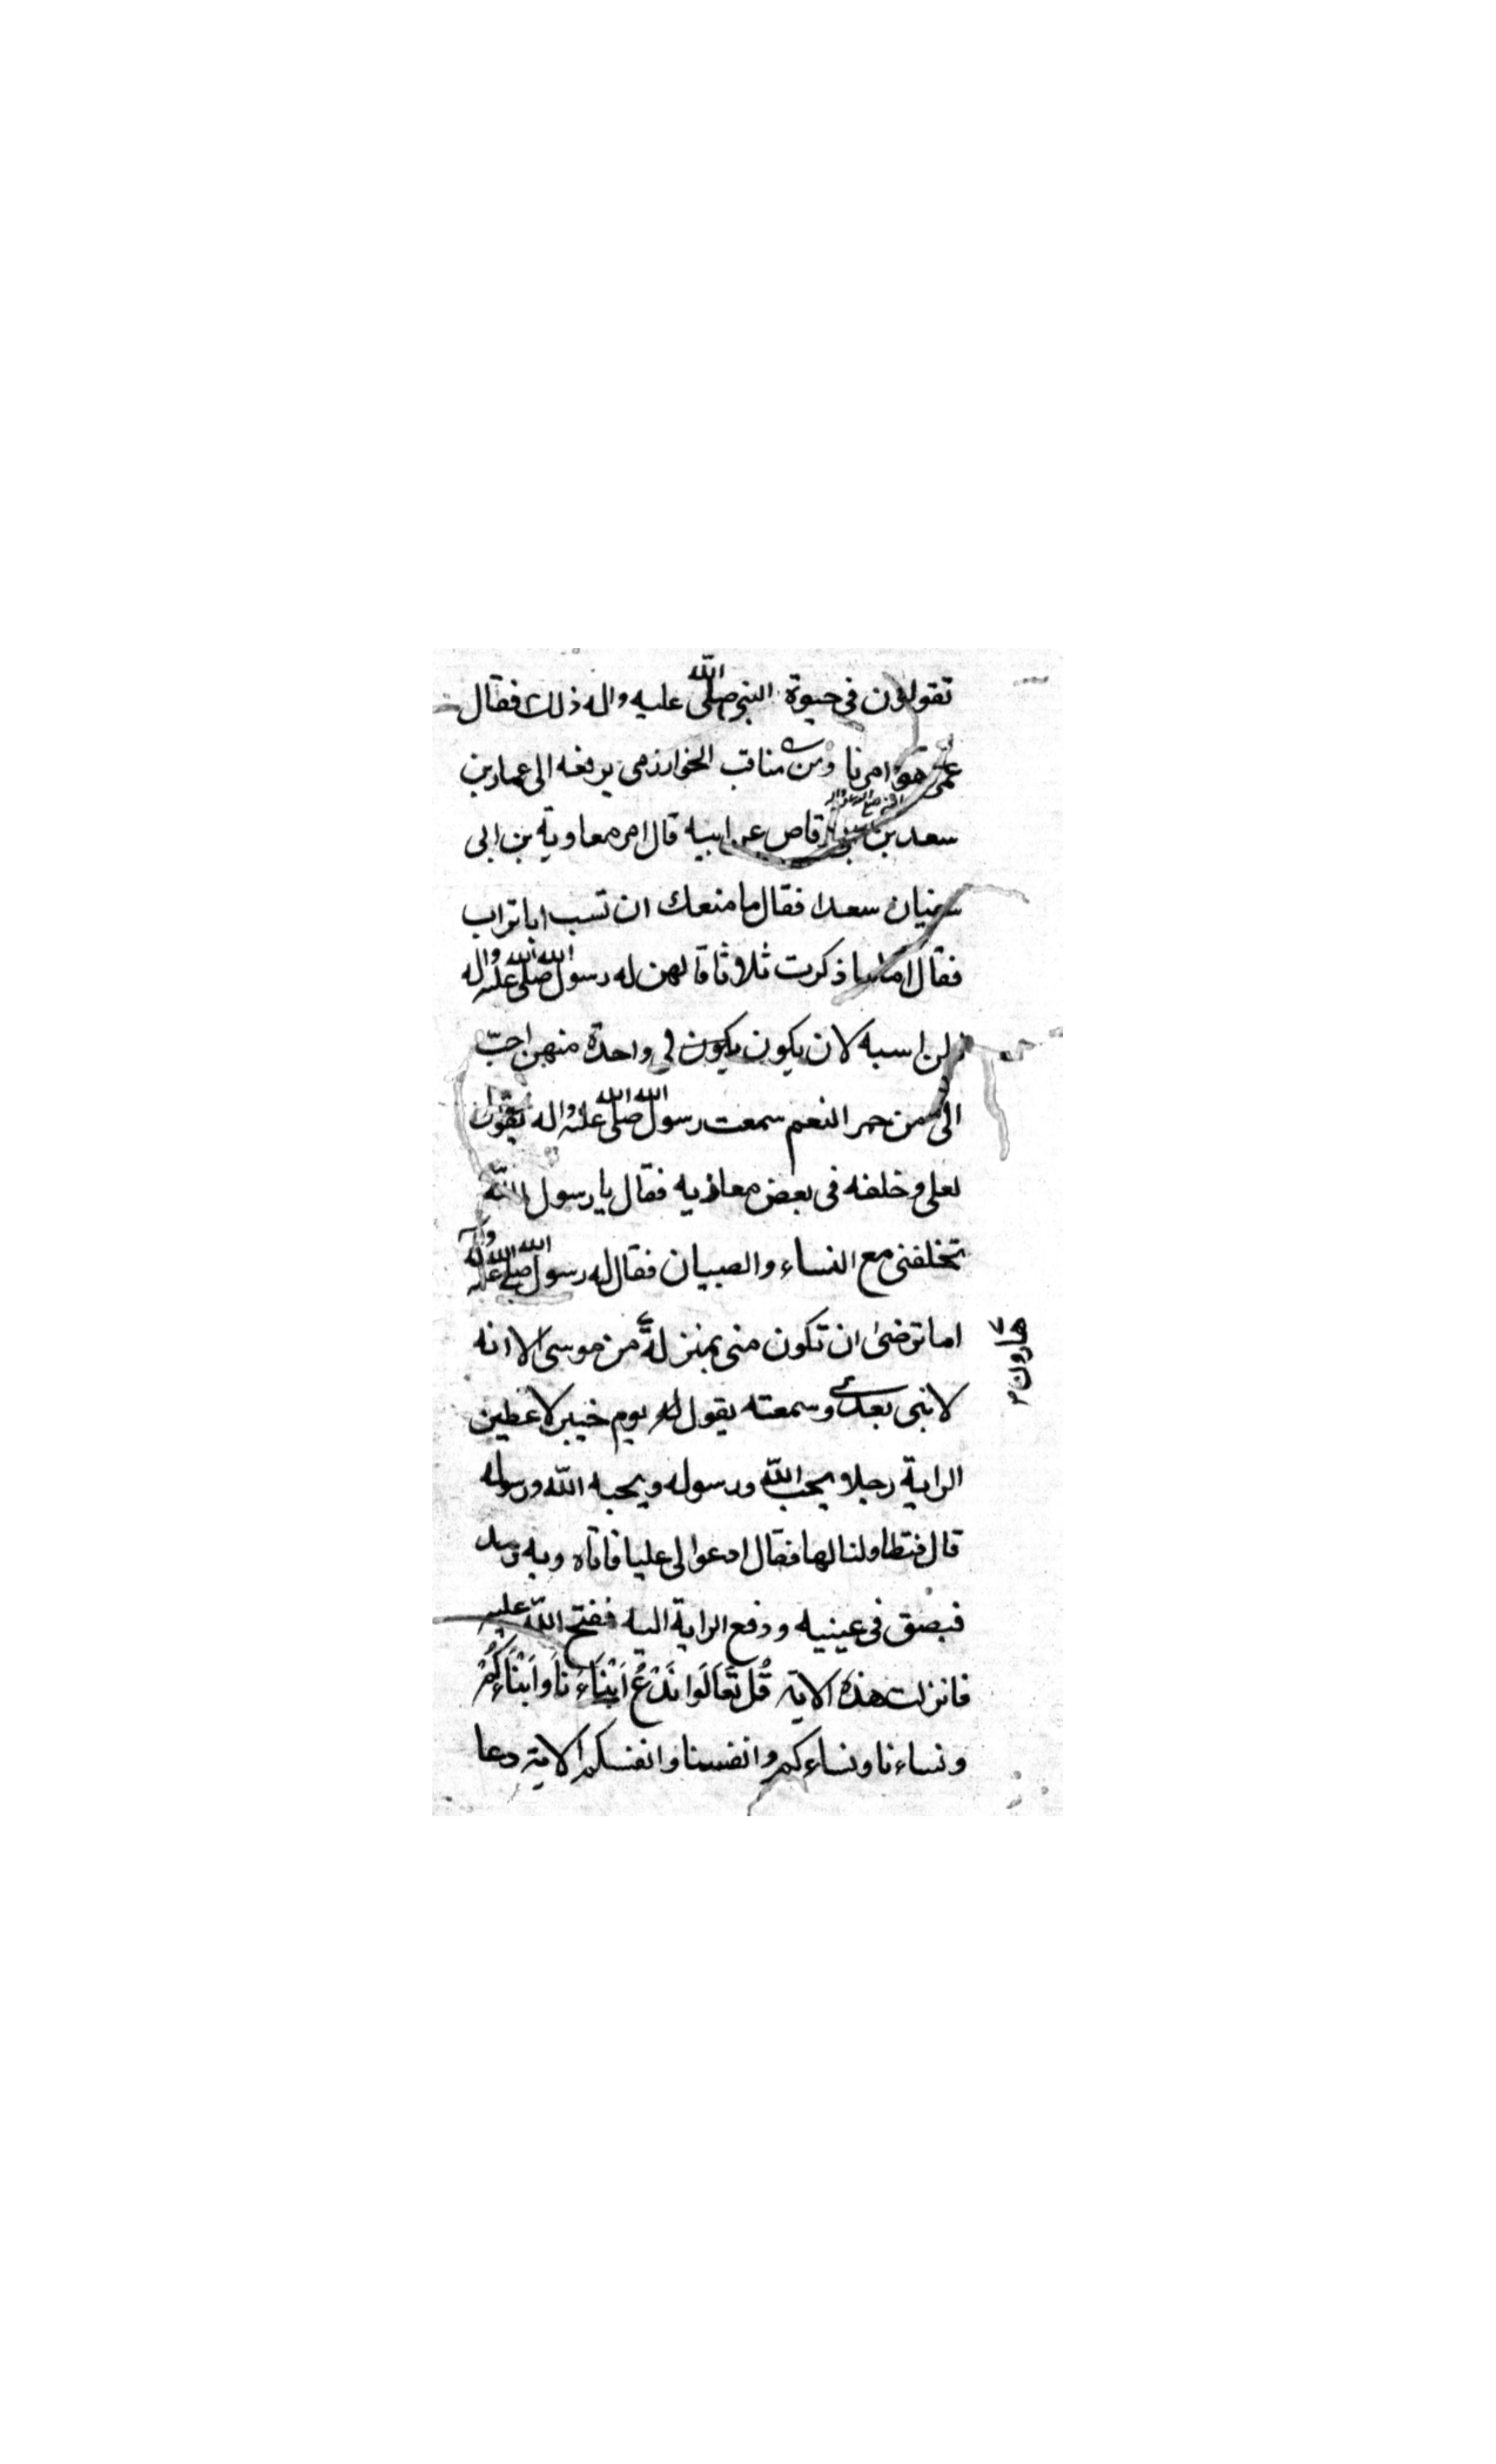 تقولون في حيوة النبي صلى الله عليه واله ذلك فقال
عمر هو امرنا ومن مناقب الخوارزمي يرفعه الى عمار بن
سعد بن وقاص عن ابيه قال امر معاوية بن ابى
سفيان سعدا فقال ما منعك ان تسب ابا تراب
فقال اما ما ذكرت ثلاثا قالهن له رسول الله صلى الله عليه واله
فلن اسبه لان يكون يكون لي واحدة منهن احبّ
الىّ من حمر النعم سمعت رسول الله صلى الله عليه واله يقول
لعلى وخلفه فى بعض مغازيه فقال يا رسول الله
تخلفنى مع النساء والصبيان فقال له رسول الله صلى الله عليه واله
اما ترضى ان تكون منى بمنزلة من موسى الا انه
هارون
لا نبى بعدى وسمعته يقول له يوم خيبر لاعطين
الراية رجلا يحب الله ورسوله ويحبه الله ورسوله
قال فتطاولنا لها فقال ادعوا لى عليا فاتاه وبه رمد
فبصق فى عينيه ودفع الراية اليه ففتح الله عليه
فانزلت هذه الاية قُل تَعَالَوا نَدْعُ اَبْنَاءَنَا وَاَبْنَاءَكُمْ
ونساءنا ونساءكم وانفسنا وانفسكم الاية دعا